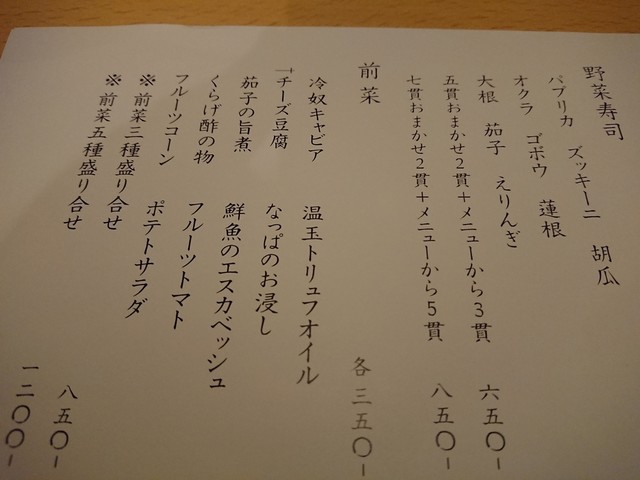 野菜寿司
パプリカ ズッキーニ 胡瓜
オクラ ゴボウ 蓮根
大根 茄子 えりんぎ
五貫おまかせ2貫+メニューから3貫 六五〇-
七貫おまかせ2貫+メニューから5貫 八五〇-
前菜 各三五〇-
冷奴キャビア 温玉トリュフオイル
チーズ豆腐 なっぱのお浸し
茄子の旨煮 鮮魚のエスカベッシュ
くらげ酢の物 フルーツトマト
フルーツコーン ポテトサラダ
※前菜三種盛り合せ 八五〇-
※前菜五種盛り合せ 一二〇〇-